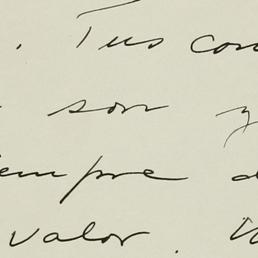 . Tus con
son y
empre d
valor.